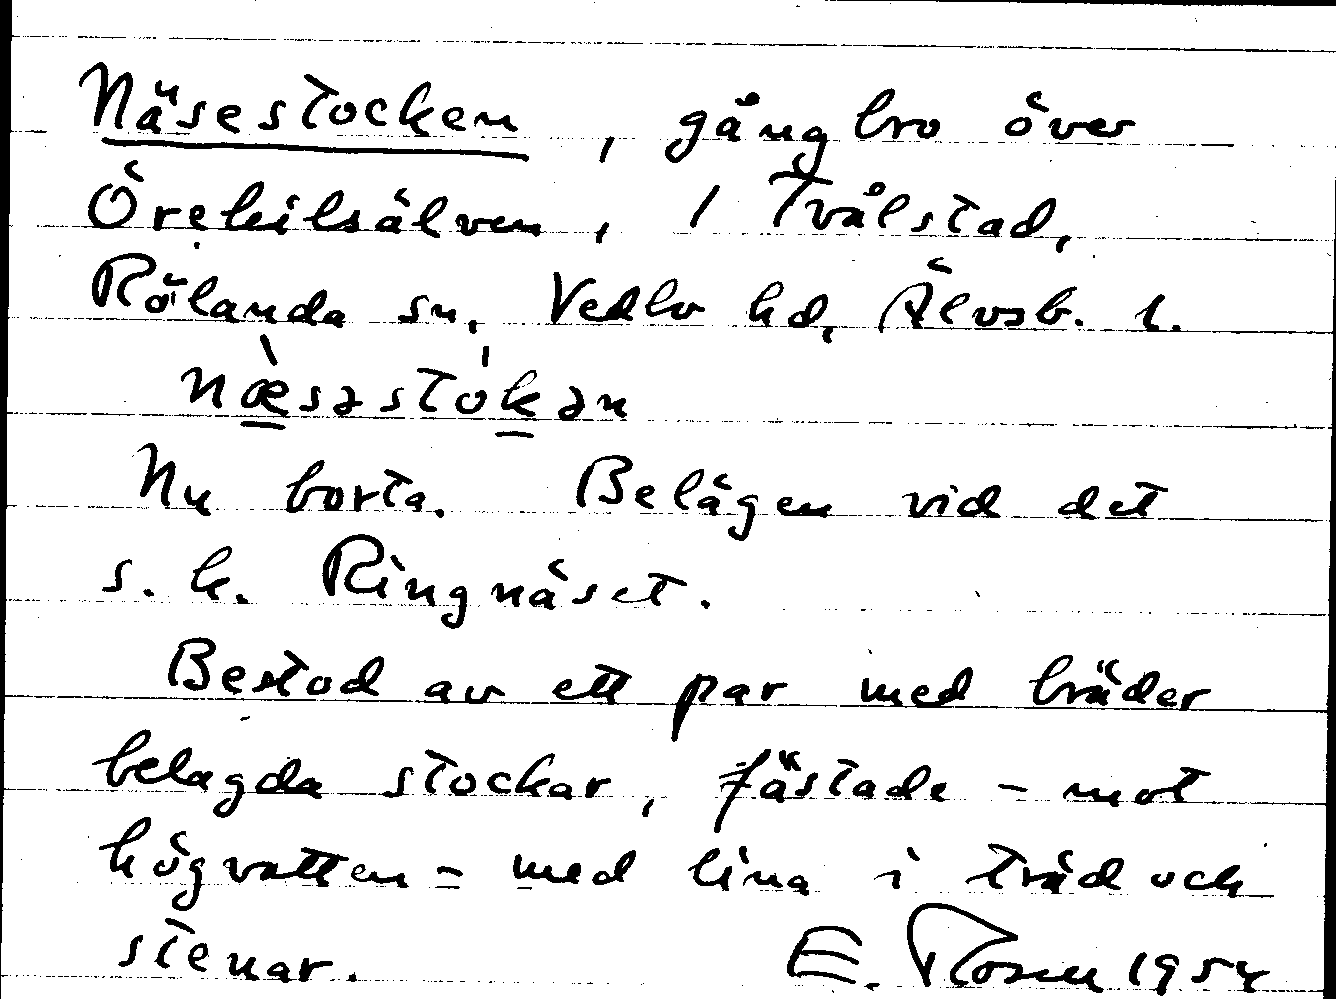 Näsestocken, gångbro över
Örekilsälven, i Tvålstad,
Rölanda sn, Vedbo hd, Älvsb. l.
næ̀səstòkən
Nu borta. Belägen vid det
s. k. Ringnäset.
Bestod av ett par med bräder
belagda stockar, fästade – mot
högvatten – med lina i träd och
stenar. E. Rosen 1954